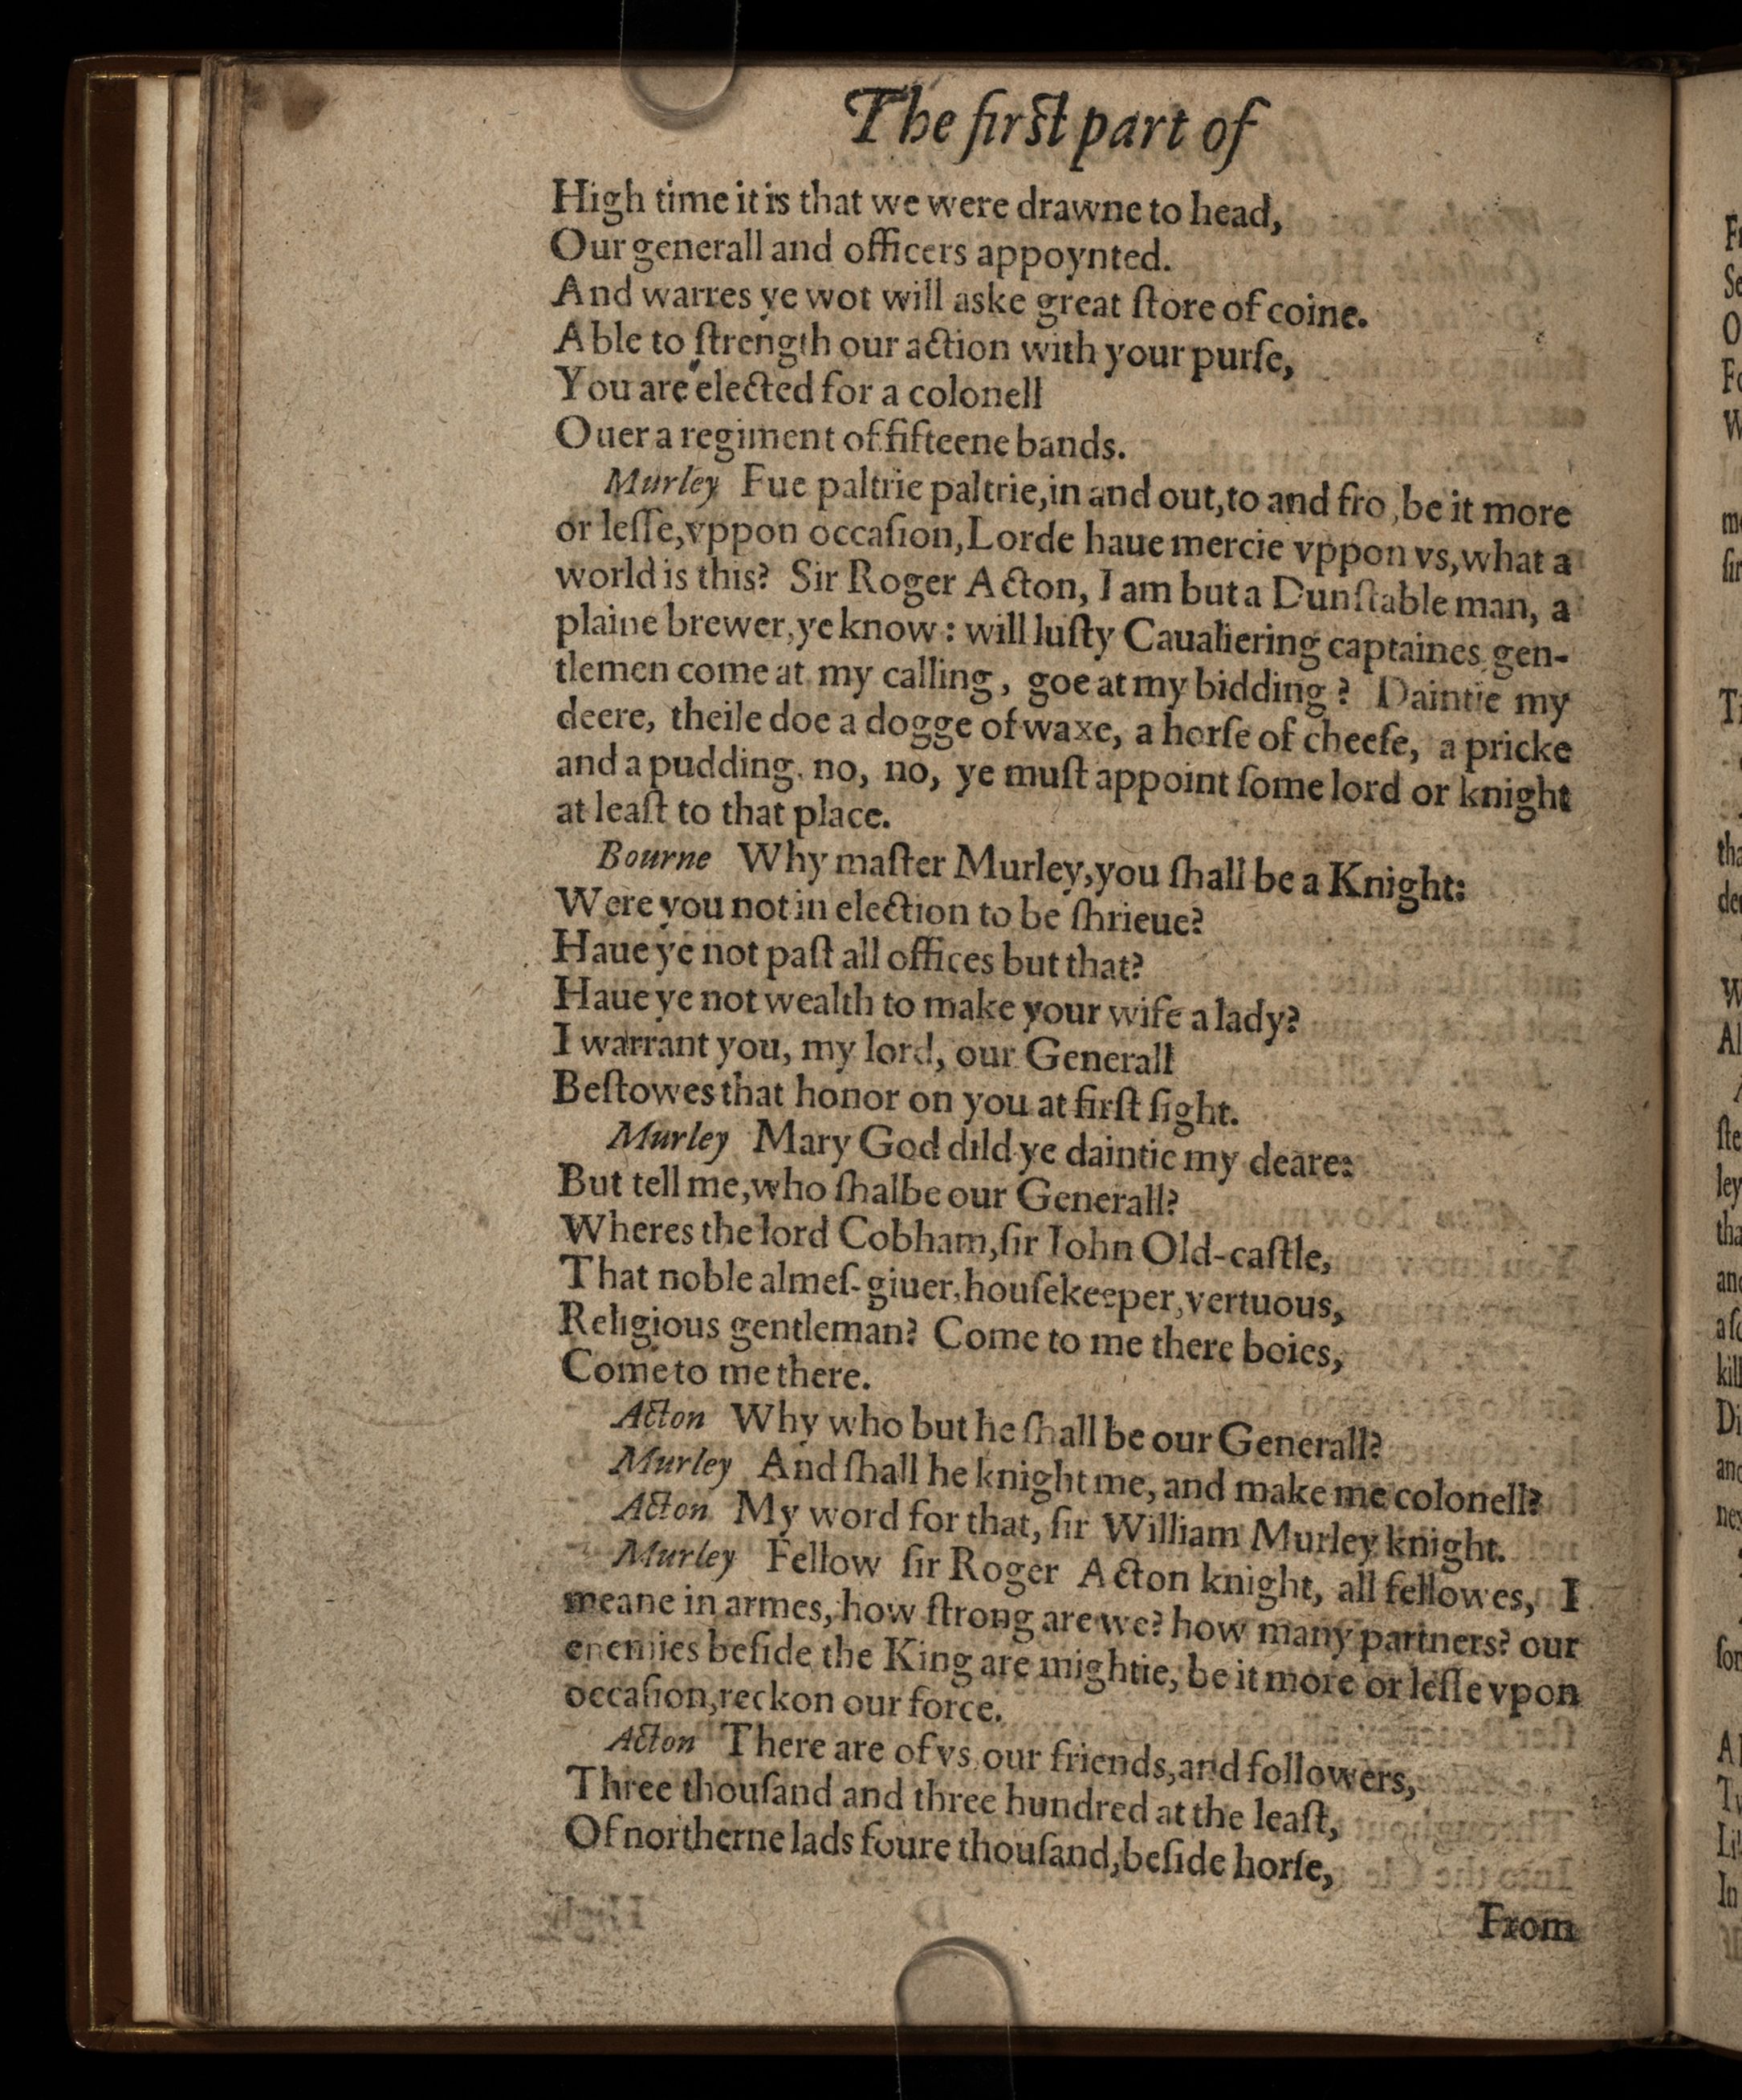 The firſt part of
High time it is that we were drawne to head,
Our generall and officers appoynted.
And warres ye wot will aske great ſtore of coine.
Able to ſtrength our action with your purſe,
You are elected for a colonell
Ouer a regiment of fifteene bands.
Murley Fue paltrie paltrie, in and out, to and fro, be it more
or leſſe, vppon occaſion, Lorde haue mercie vppon vs, what a
world is this? Sir Roger Acton, I am but a Dunſtable man, a
plaine brewer, ye know: will luſty Caualiering captaines gen-
tlemen come at my calling, goe at my bidding? Daintie my
deere, theile doe a dogge of waxe, a horſe of cheeſe, a pricke
and a pudding. no, no, ye muſt appoint ſome lord or knight
at leaſt to that place.
Bourne Why maſter Murley, you ſhall be a Knight:
Were you not in election to be ſhrieue?
Haue ye not paſt all offices but that?
Haue ye not wealth to make your wife a lady?
I warrant you, my lord, our Generall
Beſtowes that honor on you at firſt ſight.
Murley Mary God dild ye daintie my deare:
But tell me, who ſhalbe our Generall?
Wheres the lord Cobham, ſir Iohn Old-caſtle,
That noble almeſ-giuer, houſekeeper, vertuous,
Religious gentleman? Come to me there boies,
Come to me there.
Acton Why who but he ſhall be our Generall?
Murley And ſhall he knight me, and make me colonell?
Acton My word for that, ſir William Murley knight.
Murley Fellow ſir Roger Acton knight, all fellowes, I
meane in armes, how ſtrong are we? how many partners? our
enemies beſide the King are mightie, be it more or leſſe vpon
occaſion, reckon our force.
Acton There are of vs our friends, and followers,
Three thouſand and three hundred at the leaſt,
Of northerne lads foure thouſand, beſide horſe,
From